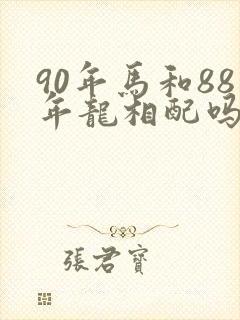 90年馬和88
年龍相配嗎
張君寶